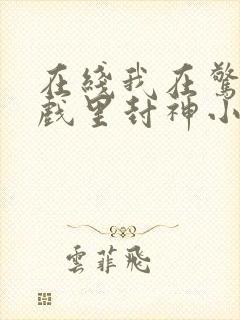 在綫我在驚
戲里封神小
雲菲飛